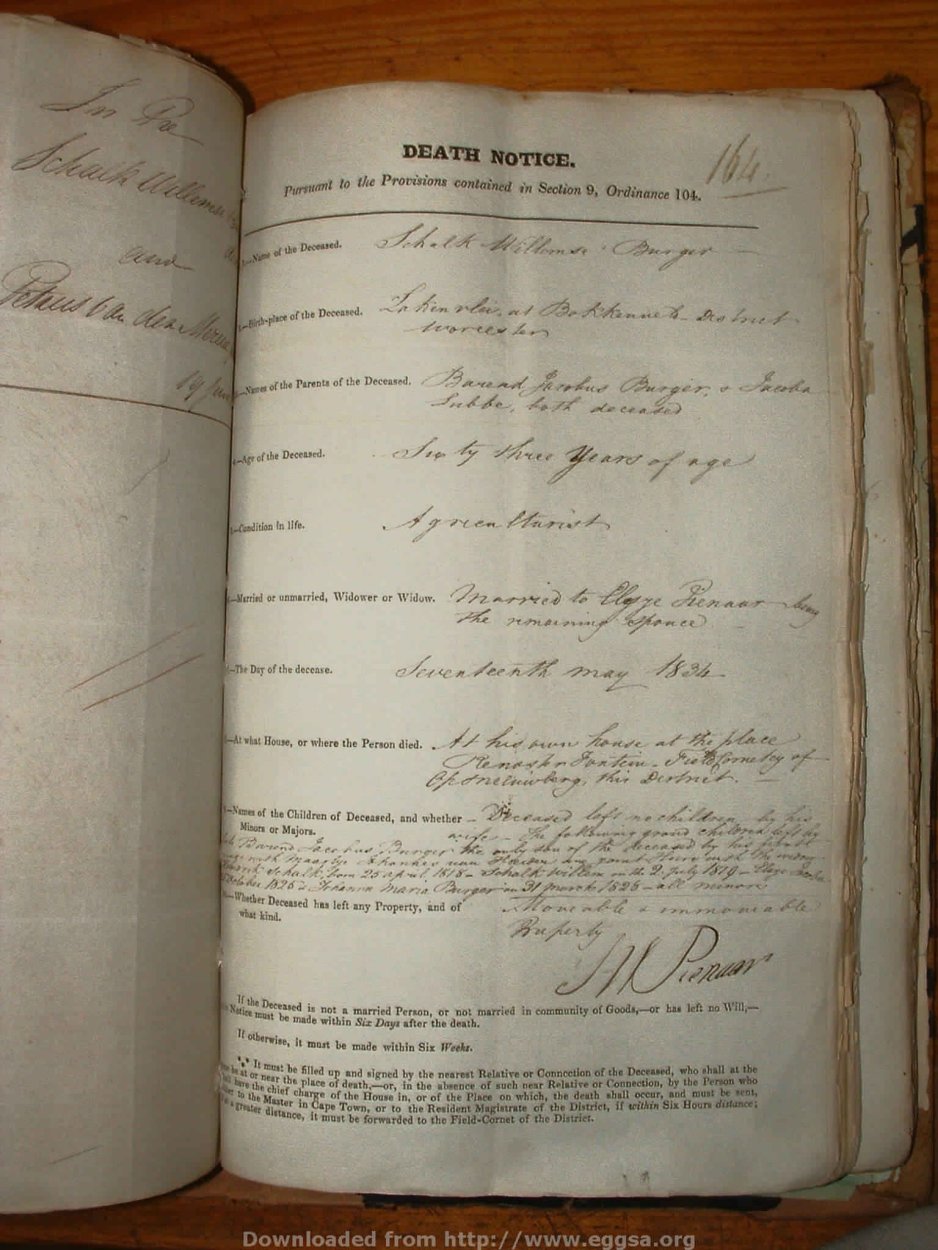 In the
Schalk Willemse
and
Petrus van der Merwe
19 Jun
164
DEATH NOTICE.
Pursuant to the Provisions contained in Section 9, Ordinance 104.
—Name of the Deceased. Schalk Willemse Burger
—Birth-place of the Deceased. at Bokkeveld District
Worcester
—Names of the Parents of the Deceased. Barend Jacobus Burger, & Jacoba
Lubbe, both deceased
—Age of the Deceased. Sixty three Years of age
—Condition in life. Agriculturist
—Married or unmarried, Widower or Widow. Married to Elsje Pienaar being
the remaining Spouce
—The Day of the decease. Seventeenth may 1834
—At what House, or where the Person died. At his own house at the place
Fontein - Field Cornetcy of
this District.
—Names of the Children of Deceased, and whether – Deceased left no children by his
Minors or Majors. wife – The following grand children left by
Barend Jacobus Burger the only son of the deceased by his first
with von
Schalk, born 25 april 1818 – Schalk Willem on the 2 July 1819 – Elsje
October 1826 & Johanna Maria Burger on 31 March 1828 – all minors
—Whether Deceased has left any Property, and of Moveable & immoveable
what kind. Property
Pienaar
If the Deceased is not a married Person, or not married in community of Goods,—or has left no Will;—
Notice must be made within Six Days after the death.
If otherwise, it must be made within Six Weeks.
It must be filled up and signed by the nearest Relative or Connection of the Deceased, who shall at the
be at or near the place of death,—or, in the absence of such near Relative or Connection, by the Person who
shall have the chief charge of the House in, or of the Place on which, the death shall occur, and must be sent,
to the Master in Cape Town, or to the Resident Magistrate of the District, if within Six Hours distance;
a greater distance, it must be forwarded to the Field-Cornet of the District.
Downloaded from http://www.eggsa.org